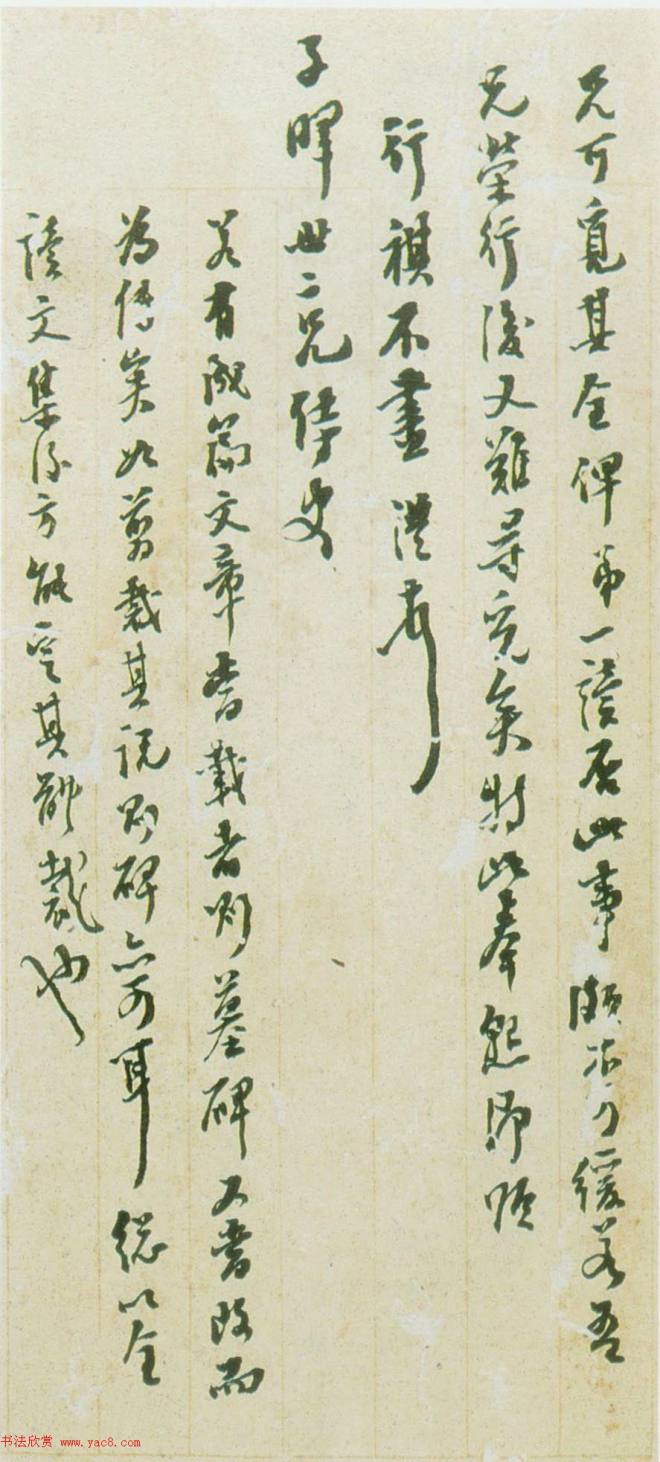 兄可覓其全俾弟一讀否此事頗不可緩若吾
兄榮行後又難尋覓矣特此奉懇即頌
行祺不盡
子暉世二兄侍史
若有成篇文章書載者則墓碑又當改而
為傳矣如剪裁其說則碑亦可耳總以全
讀文集後方能定其體裁也
书法欣赏 www.yac8.com